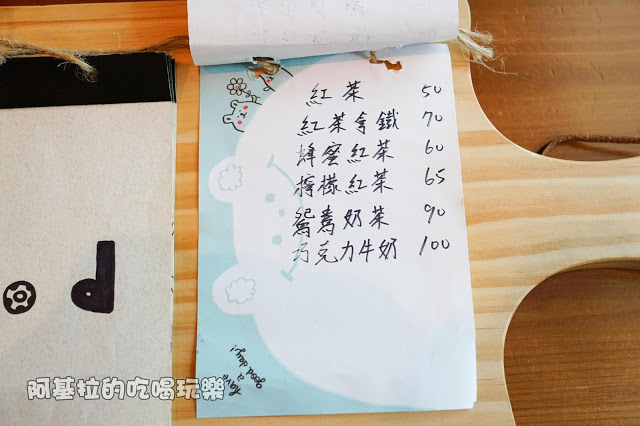 紅茶 50
紅茶拿鐵 70
蜂蜜紅茶 60
檸檬紅茶 65
鴛鴦奶茶 90
巧克力牛奶 100
have
a
good day!
od
阿基拉的吃喝玩樂